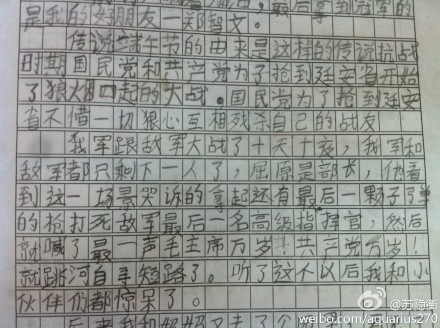 最后拿到冠军的
是我的好朋友一郑智文。
传说端午节的由来是这样的传说抗战
时期国民党和共产党为了抢到延安省开始
了狼烟四起的大战。国民党为了抢到延安
省不惜一切狠心互相残杀自己的战友
我军跟敌军大战了十天十夜，我军和
敌军都只剩下一人了，屈原是部长，他看
到这一场景哭诉的拿起还有最后一颗子弹
的枪打死敌军最后一名高级指挥官，然后
就喊了最一声毛主席万岁！！共产党万岁！
就跳河自寻短路了。听了这个以后我和小
伙伴们都惊呆了。
后来我和妈妈又去了个
@苏隐衡
weibo.com/aquarius270